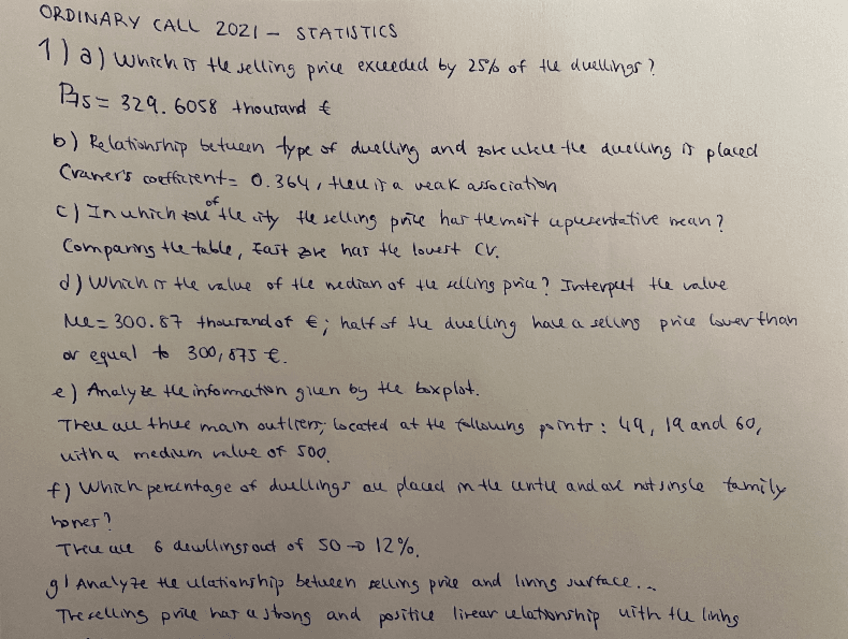 ORDINARY CALL 2021 - STATISTICS
1) a) Which is the selling price exceeded by 25% of the duellings?
P75 = 329.6058 thousand €
b) Relationship between type of duelling and zone where the duelling is placed
Cramer's coefficient = 0.364, there is a weak association
c) In which zone of the city the selling price has the most representative mean?
Comparing the table, East zone has the lowest CV.
d) Which is the value of the median of the selling price? Interpret the value
Me = 300.87 thousand of €; half of the duelling have a selling price lower than
or equal to 300,875 €.
e) Analyze the information given by the boxplot.
There are three main outliers, located at the following points: 49, 19 and 60,
with a medium value of 500.
f) Which percentage of duellings are placed in the centre and are not single family
homes?
There are 6 dewllings out of 50 → 12%.
g) Analyze the relationship between selling price and living surface...
The selling price has a strong and positive linear relationship with the living